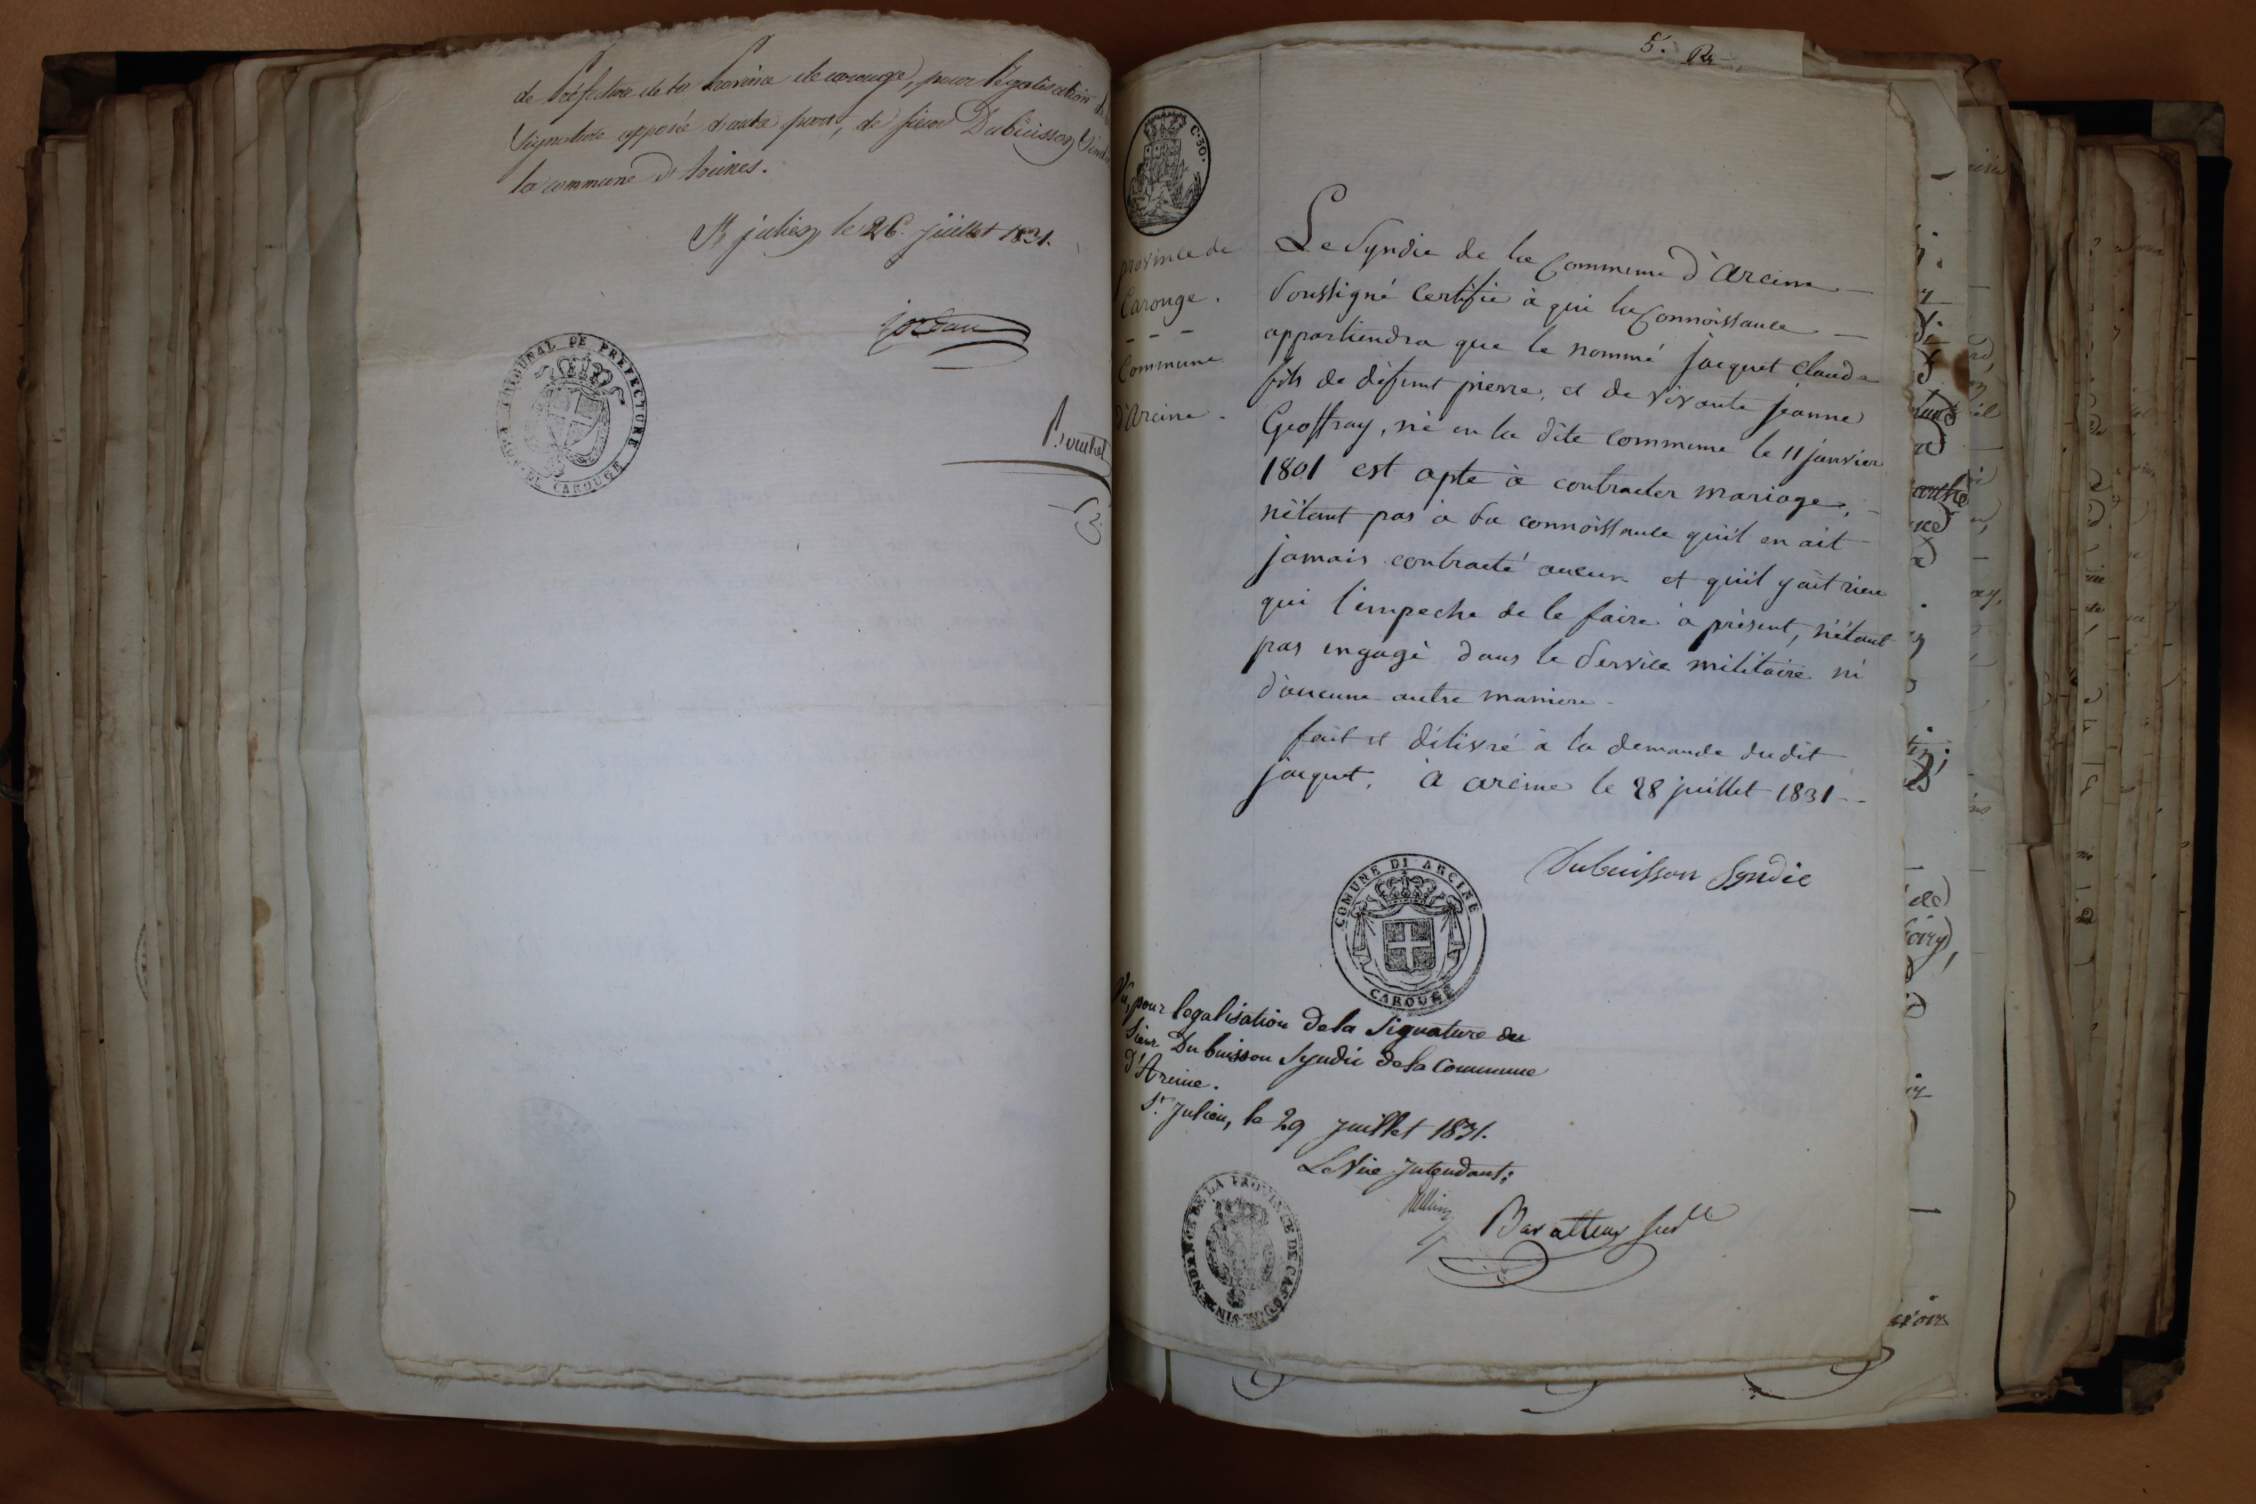 de Préfecture de la Province de carouge, pour légalisation de
signature apposée d'autre part, de sieur Dubuisson Sindic
la commune d'Arcines.
St julien le 26. juillet 1831.
jordan
TRIBUNAL DE PREFECTURE
DE CAROUGE
5. Rs
C. 30.
province de
Carouge.
Commune
d'Arcine.
Le Syndic de la Commune d'Arcine
Soussigné Certifie à qui la Connoissance
appartiendra que le nommé jacquet Claude
fils de défunt pierre, et de vivante jeanne
Geoffray, né en la dite commune le 11 janvier
1801 est apte à contracter mariage,
n'étant pas à sa connoissance qu'il en ait
jamais contracté aucun et qu'il y ait rien
qui l'empeche de le faire à présent, n'étant
pas engagé dans le Service militaire ni
d'aucune autre maniere
fait et délivré à la demande du dit
jacquet. à arcine le 28 juillet 1831
Dubuisson Syndic
COMUNE DI ARCINE
CAROUGE
Vu, pour legalisation de la Signature du
Sieur Dubuisson Syndic de la Commune
d'Arcine.
St. Julien, le 29 juillet 1831.
Le Vice Intendant;
INTENDANCE DE LA PROVINCE DE CAROUGE